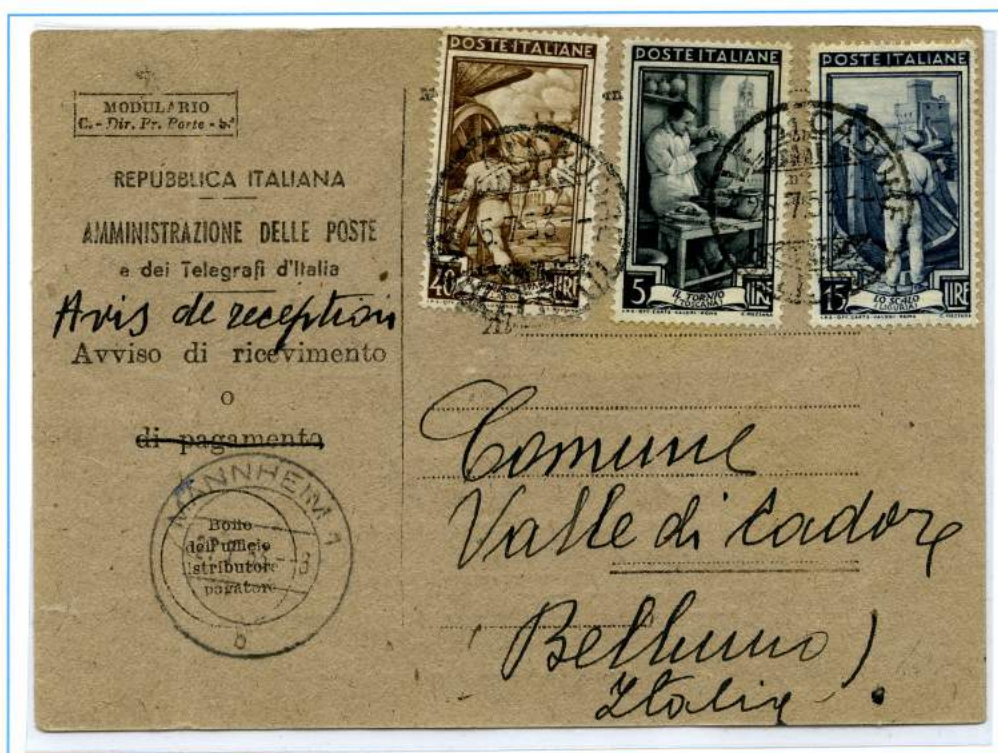 MODULARIO
C. - Dir. Pr. Poste -
REPUBBLICA ITALIANA
AMMINISTRAZIONE DELLE POSTE
e dei Telegrafi d'Italia
Avis de reception
Avviso di ricevimento
o
di pagamento
MANNHEIM 1
Bollo
dell'ufficio
distributore
pagatore
b
POSTE ITALIANE
40 LIRE
POSTE ITALIANE
5 LIRE
IL TORNIO
(TOSCANA)
I.P.S. - OFF. CARTE - VALORI - ROMA
C. MEZZANA
POSTE ITALIANE
15 LIRE
LO SCALO
(LIGURIA)
I.P.S. - OFF. CARTE - VALORI - ROMA
C. MEZZANA
DI CADORE
Comune
Valle di Cadore
Belluno)
Italia.